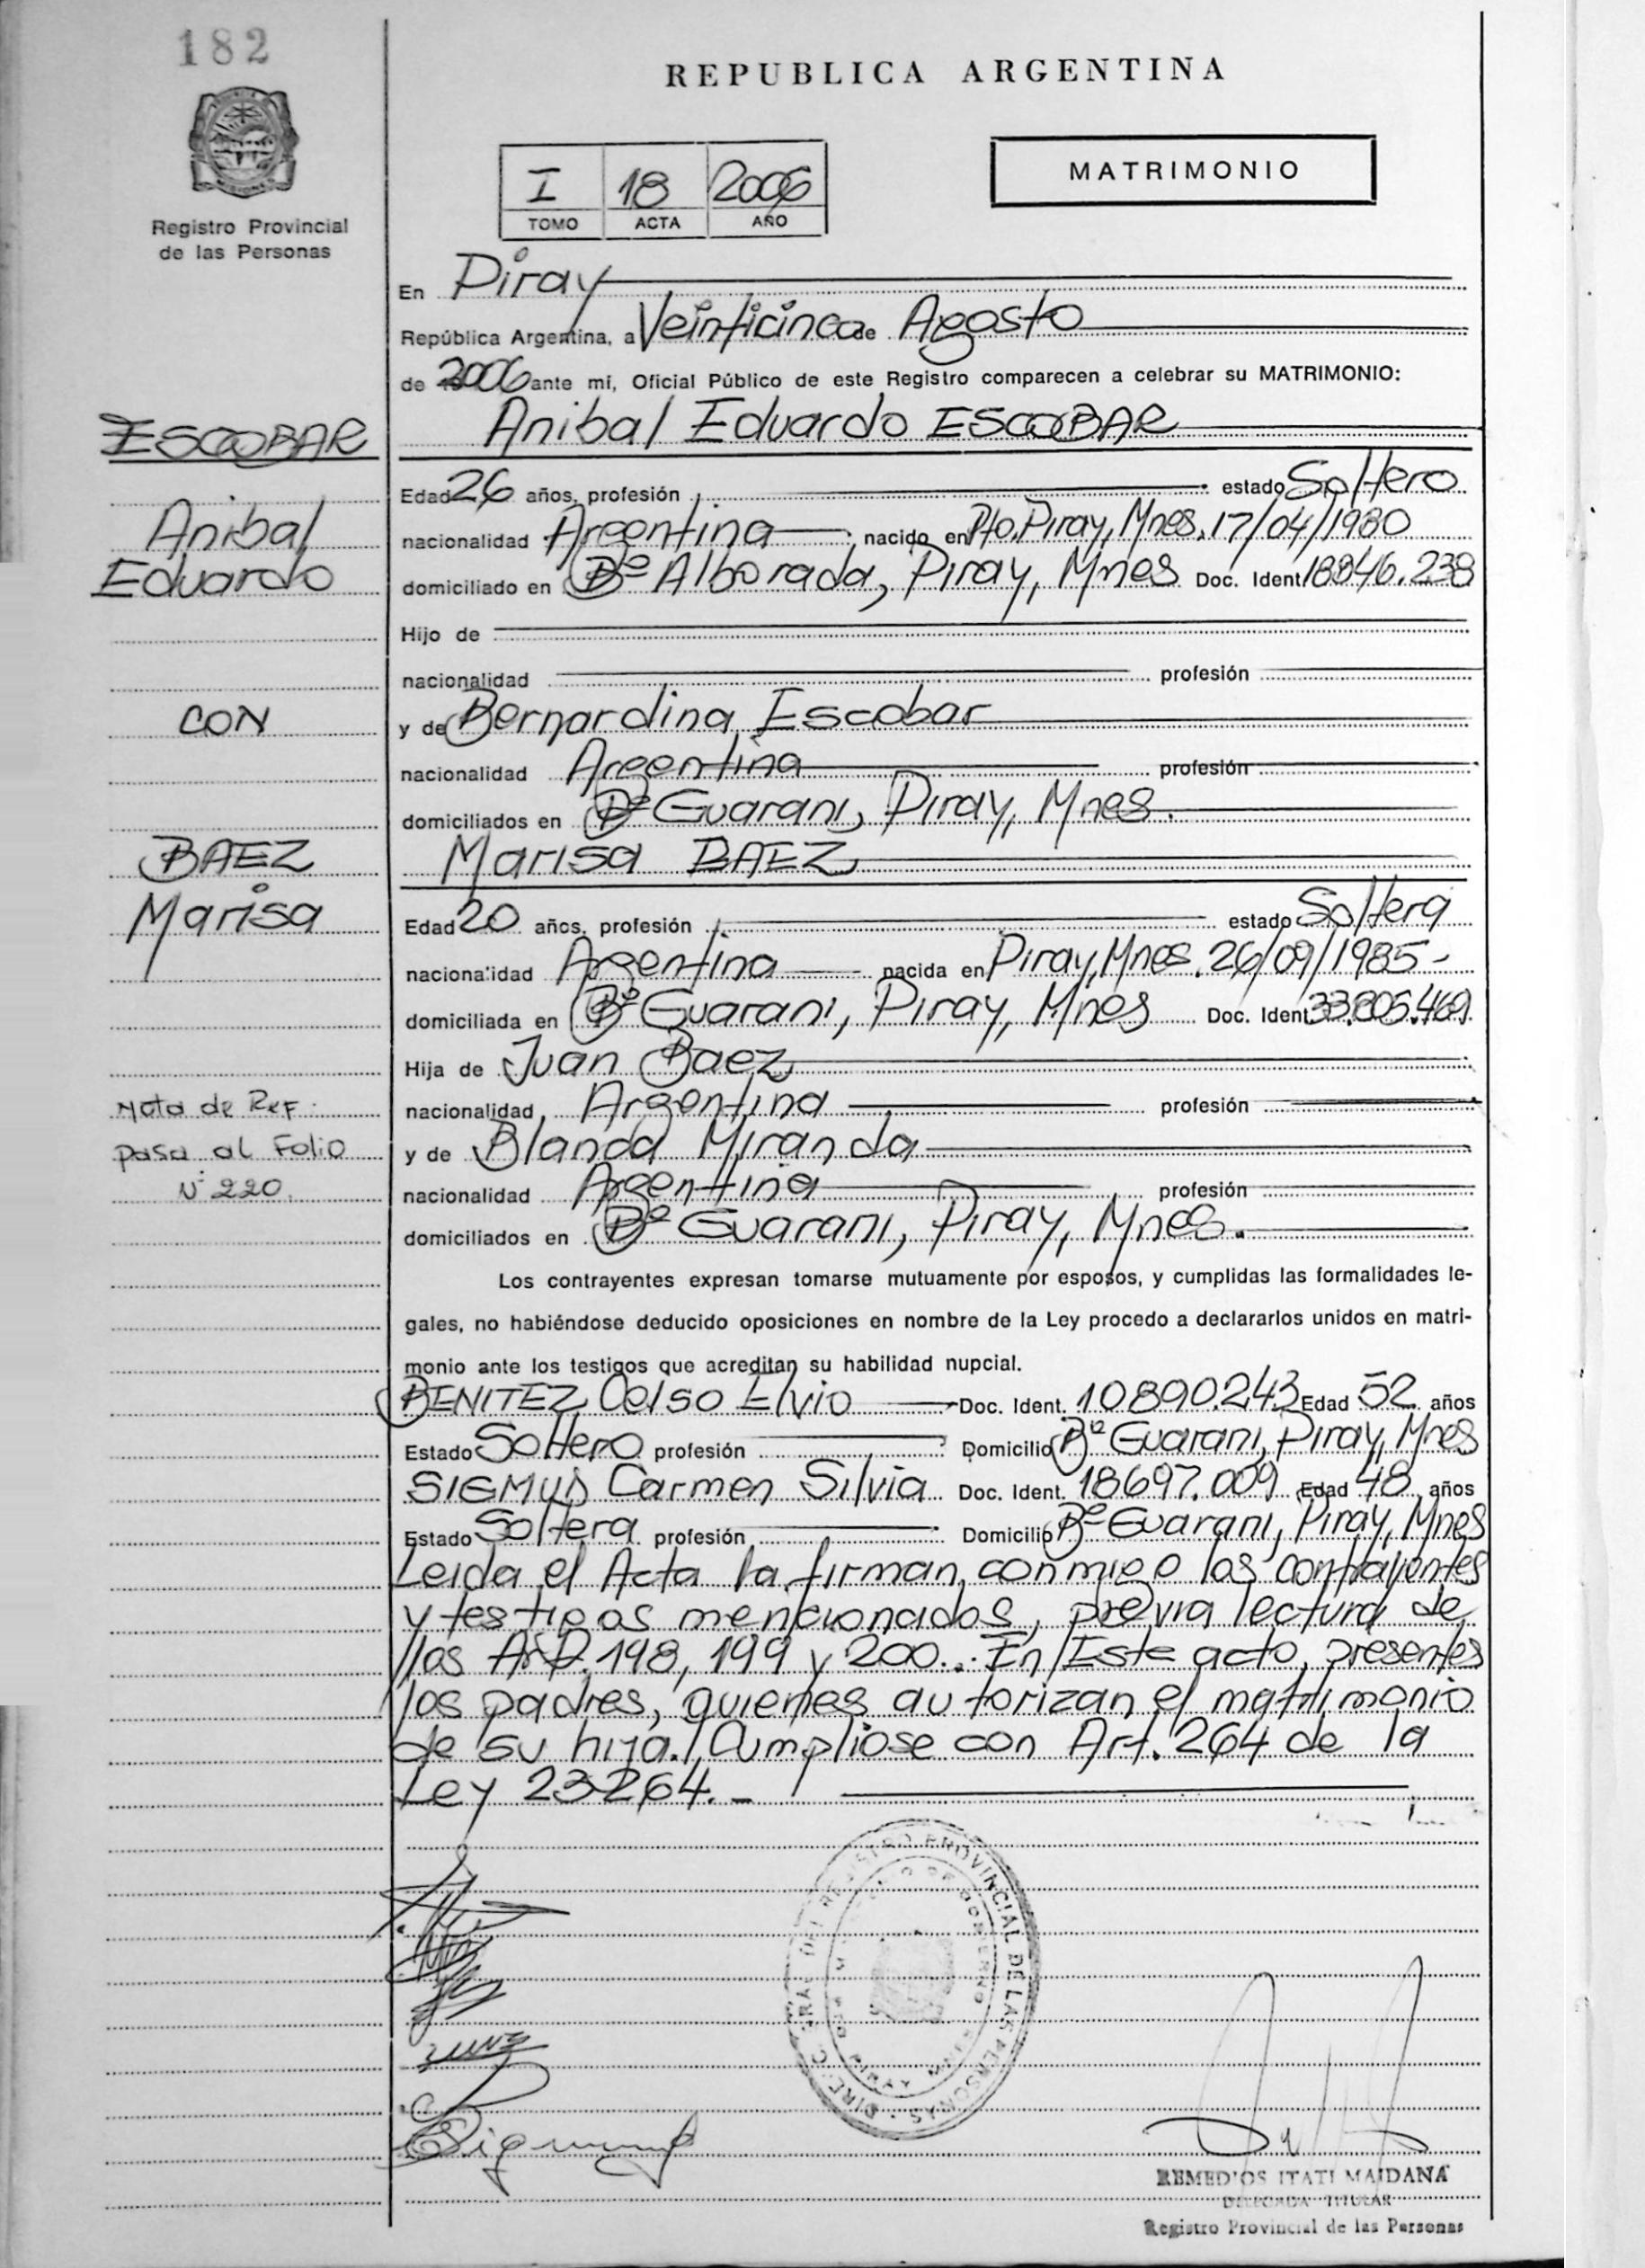 182
REPUBLICA ARGENTINA
Registro Provincial
de las Personas
I 18 2006
TOMO ACTA AÑO
MATRIMONIO
En Piray
República Argentina, a Veinticinco de Agosto
de 2006 ante mi, Oficial Público de este Registro comparecen a celebrar su MATRIMONIO:
ESCOBAR
Anibal Eduardo ESCOBAR
Edad 26 años, profesión estado Soltero
Anibal
nacionalidad Argentina nacido en Pto. Piray, Mnes. 17/04/1980
Eduardo
domiciliado en Bº Alborada, Piray, Mnes Doc. Ident 18846.238
Hijo de
nacionalidad profesión
CON
y de Bernardina Escobar
nacionalidad Argentina profesión
domiciliados en Bº Guarani, Piray, Mnes.
BAEZ
Marisa BAEZ
Marisa
Edad 20 años, profesión estado Soltera
nacionalidad Argentina nacida en Piray, Mnes. 26/09/1985-
domiciliada en Bº Guarani, Piray, Mnes Doc. Ident 33.805.469
Hija de Juan Baez
Nota de Ref.
nacionalidad Argentina profesión
pasa al Folio
y de Blanca Miranda
Nº 220.
nacionalidad Argentina profesión
domiciliados en Bº Guarani, Piray, Mnes.
Los contrayentes expresan tomarse mutuamente por esposos, y cumplidas las formalidades le-
gales, no habiéndose deducido oposiciones en nombre de la Ley procedo a declararlos unidos en matri-
monio ante los testigos que acreditan su habilidad nupcial.
BENITEZ Celso Elvio Doc. Ident. 10890.243 Edad 52 años
Estado Soltero profesión Domicilio Bº Guarani, Piray, Mnes
Carmen Silvia Doc. Ident. 18697.009 Edad 48 años
Estado Soltera profesión Domicilio Bº Guarani, Piray, Mnes
Leida el Acta la firman conmigo los contrayentes
y testigos mencionados, previa lectura de
los Art. 198, 199 y 200.- En Este acto, presentes
los padres, quienes autorizan el matrimonio
de su hija. Cumpliose con Art. 264 de la
Ley 23264.-
REGISTRO PROVINCIAL DE LAS PERSONAS
REMEDIOS ITATI MAIDANA
DELEGADA TITULAR
Registro Provincial de las Personas